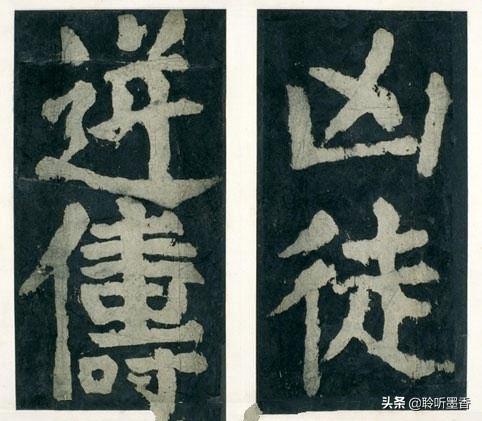 凶徒
逆儔
头条 @聆听墨香